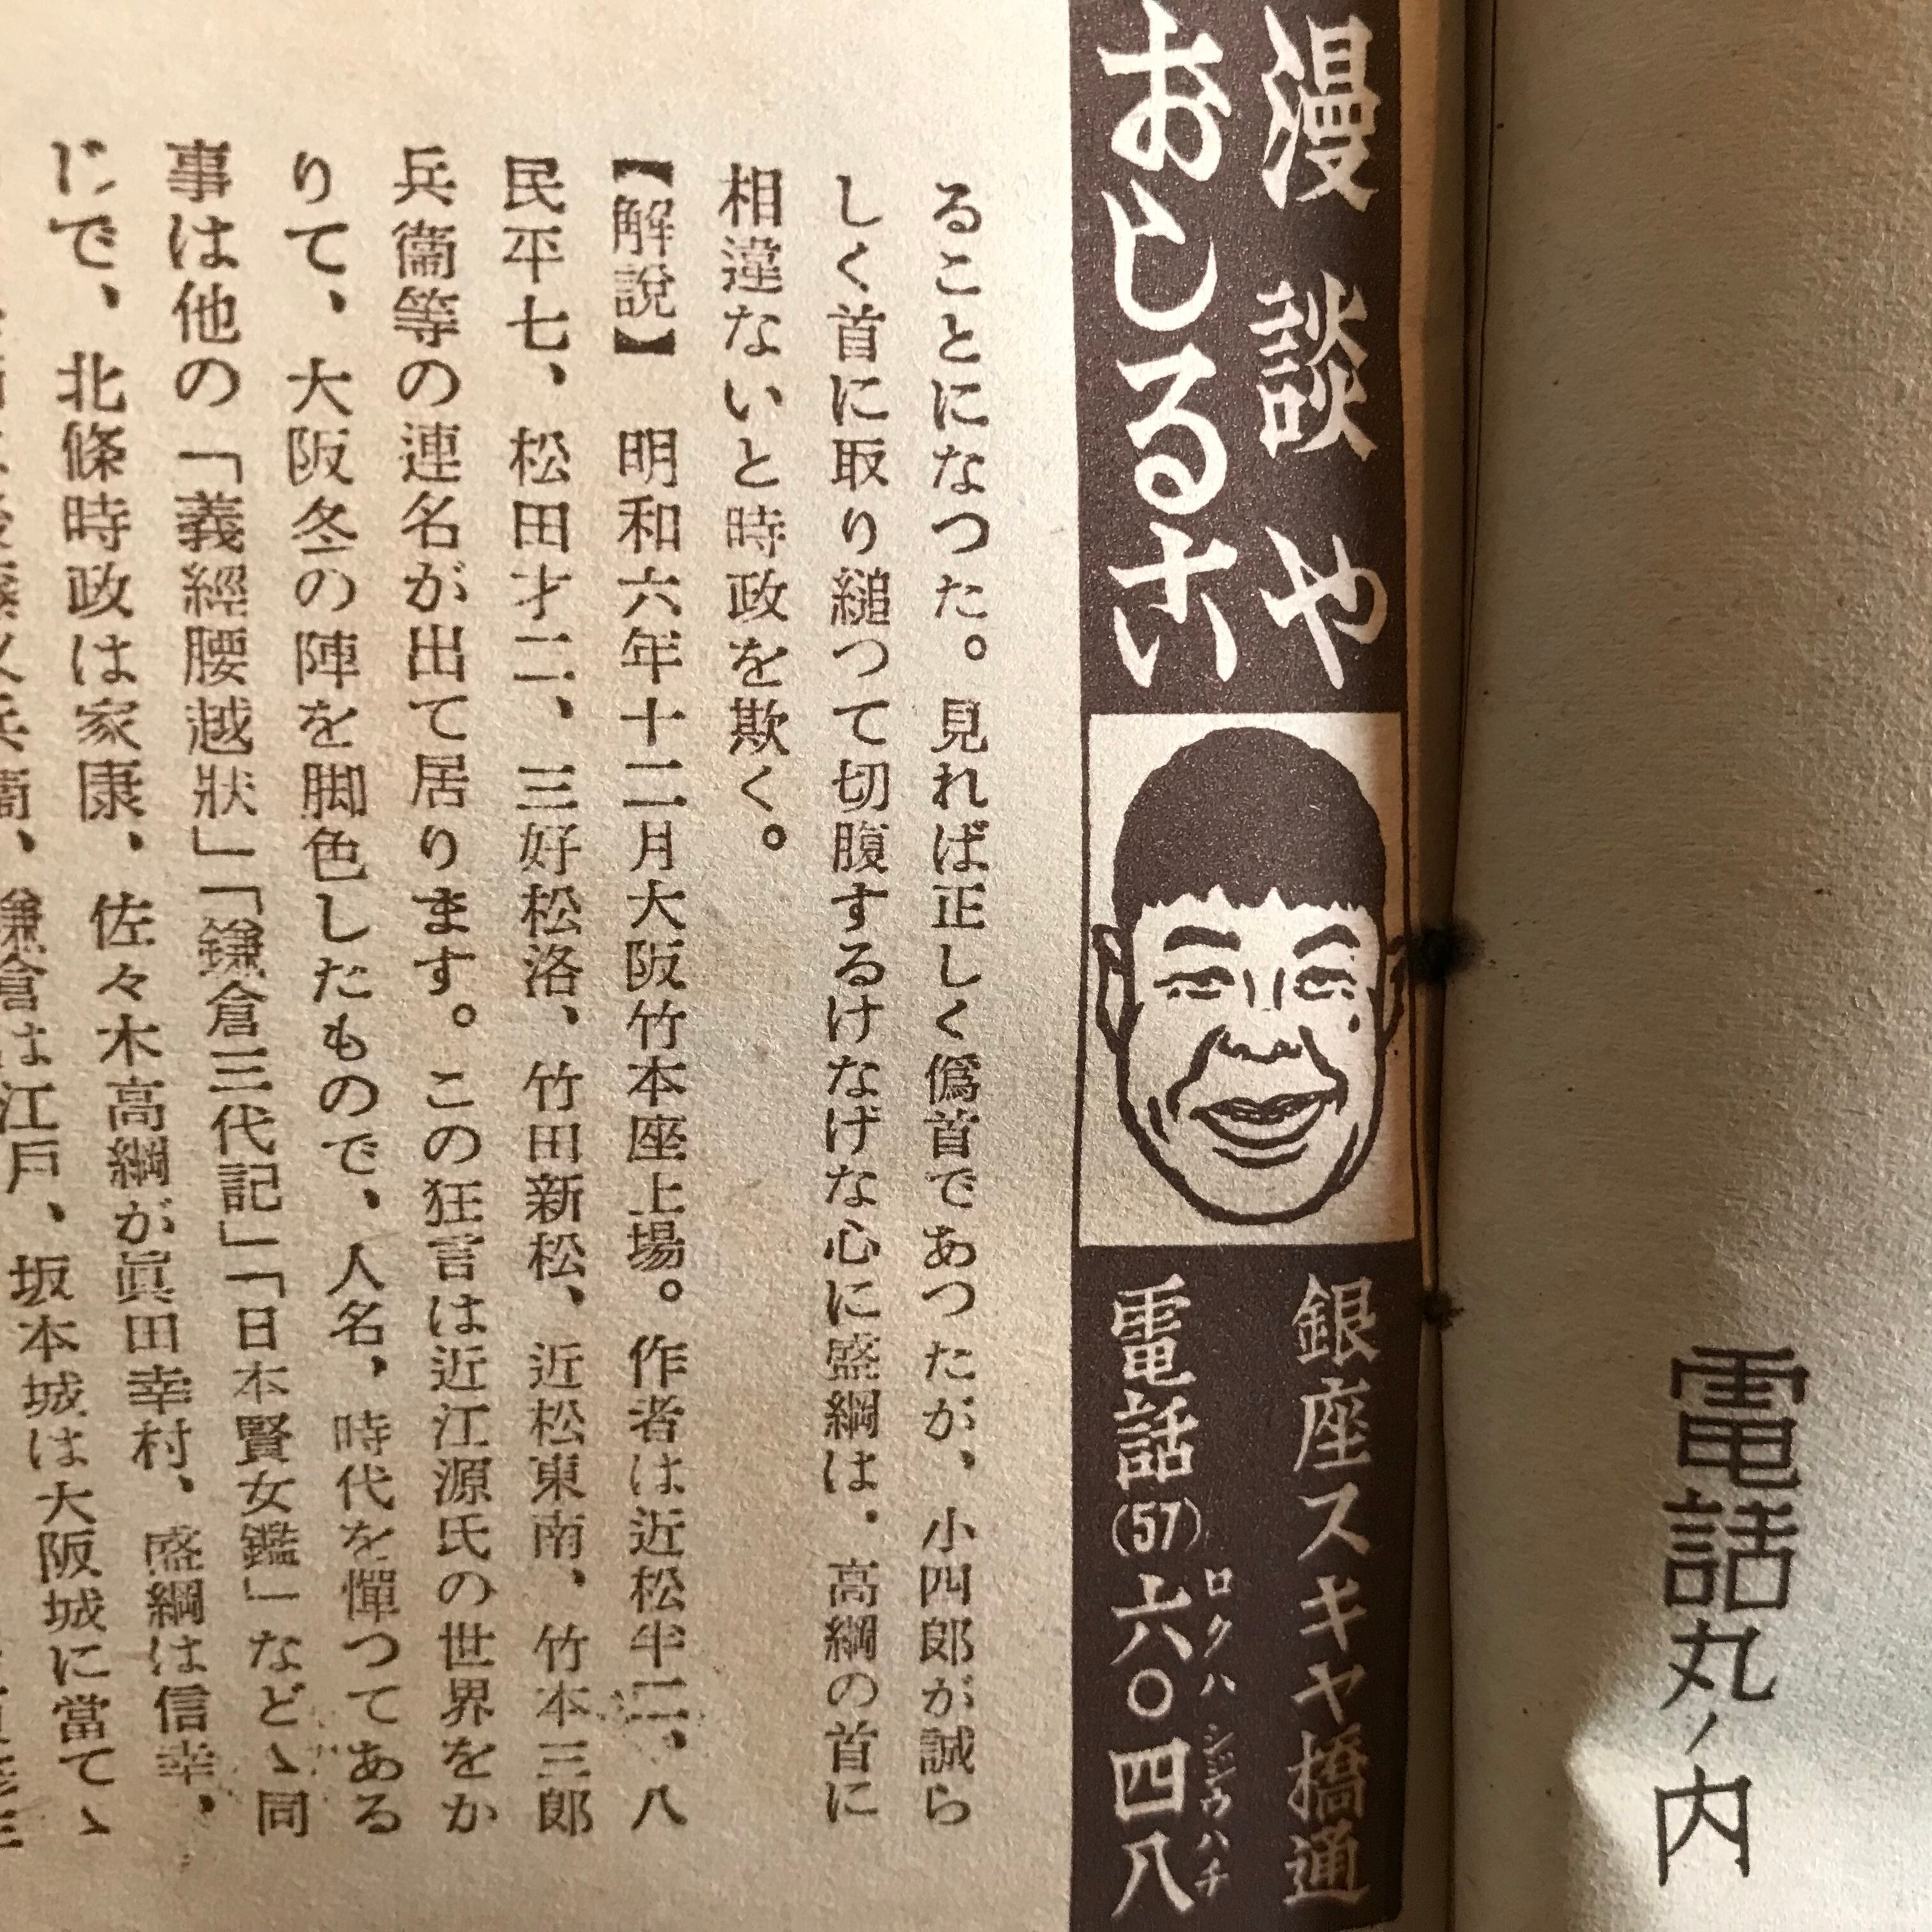 電話丸ノ内
漫談や
おしるこ
銀座スキヤ橋通
電話(57)六〇四八
ロクハシジウハチ
ることになつた。見れば正しく僞首であつたが、小四郎が誠ら
しく首に取り縋つて切腹するけなげな心に盛綱は、高綱の首に
相違ないと時政を欺く。
【解說】 明和六年十二月大阪竹本座上場。作者は近松半二、八
民平七、松田才二、三好松洛、竹田新松、近松東南、竹本三郎
兵衞等の連名が出て居ります。この狂言は近江源氏の世界をか
りて、大阪冬の陣を脚色したもので、人名、時代を憚つてある
事は他の「義經腰越狀」「鎌倉三代記」「日本賢女鑑」などゝ同
じで、北條時政は家康、佐々木高綱が眞田幸村、盛綱は信幸、
鎌倉は江戶、坂本城は大阪城に當てゝ